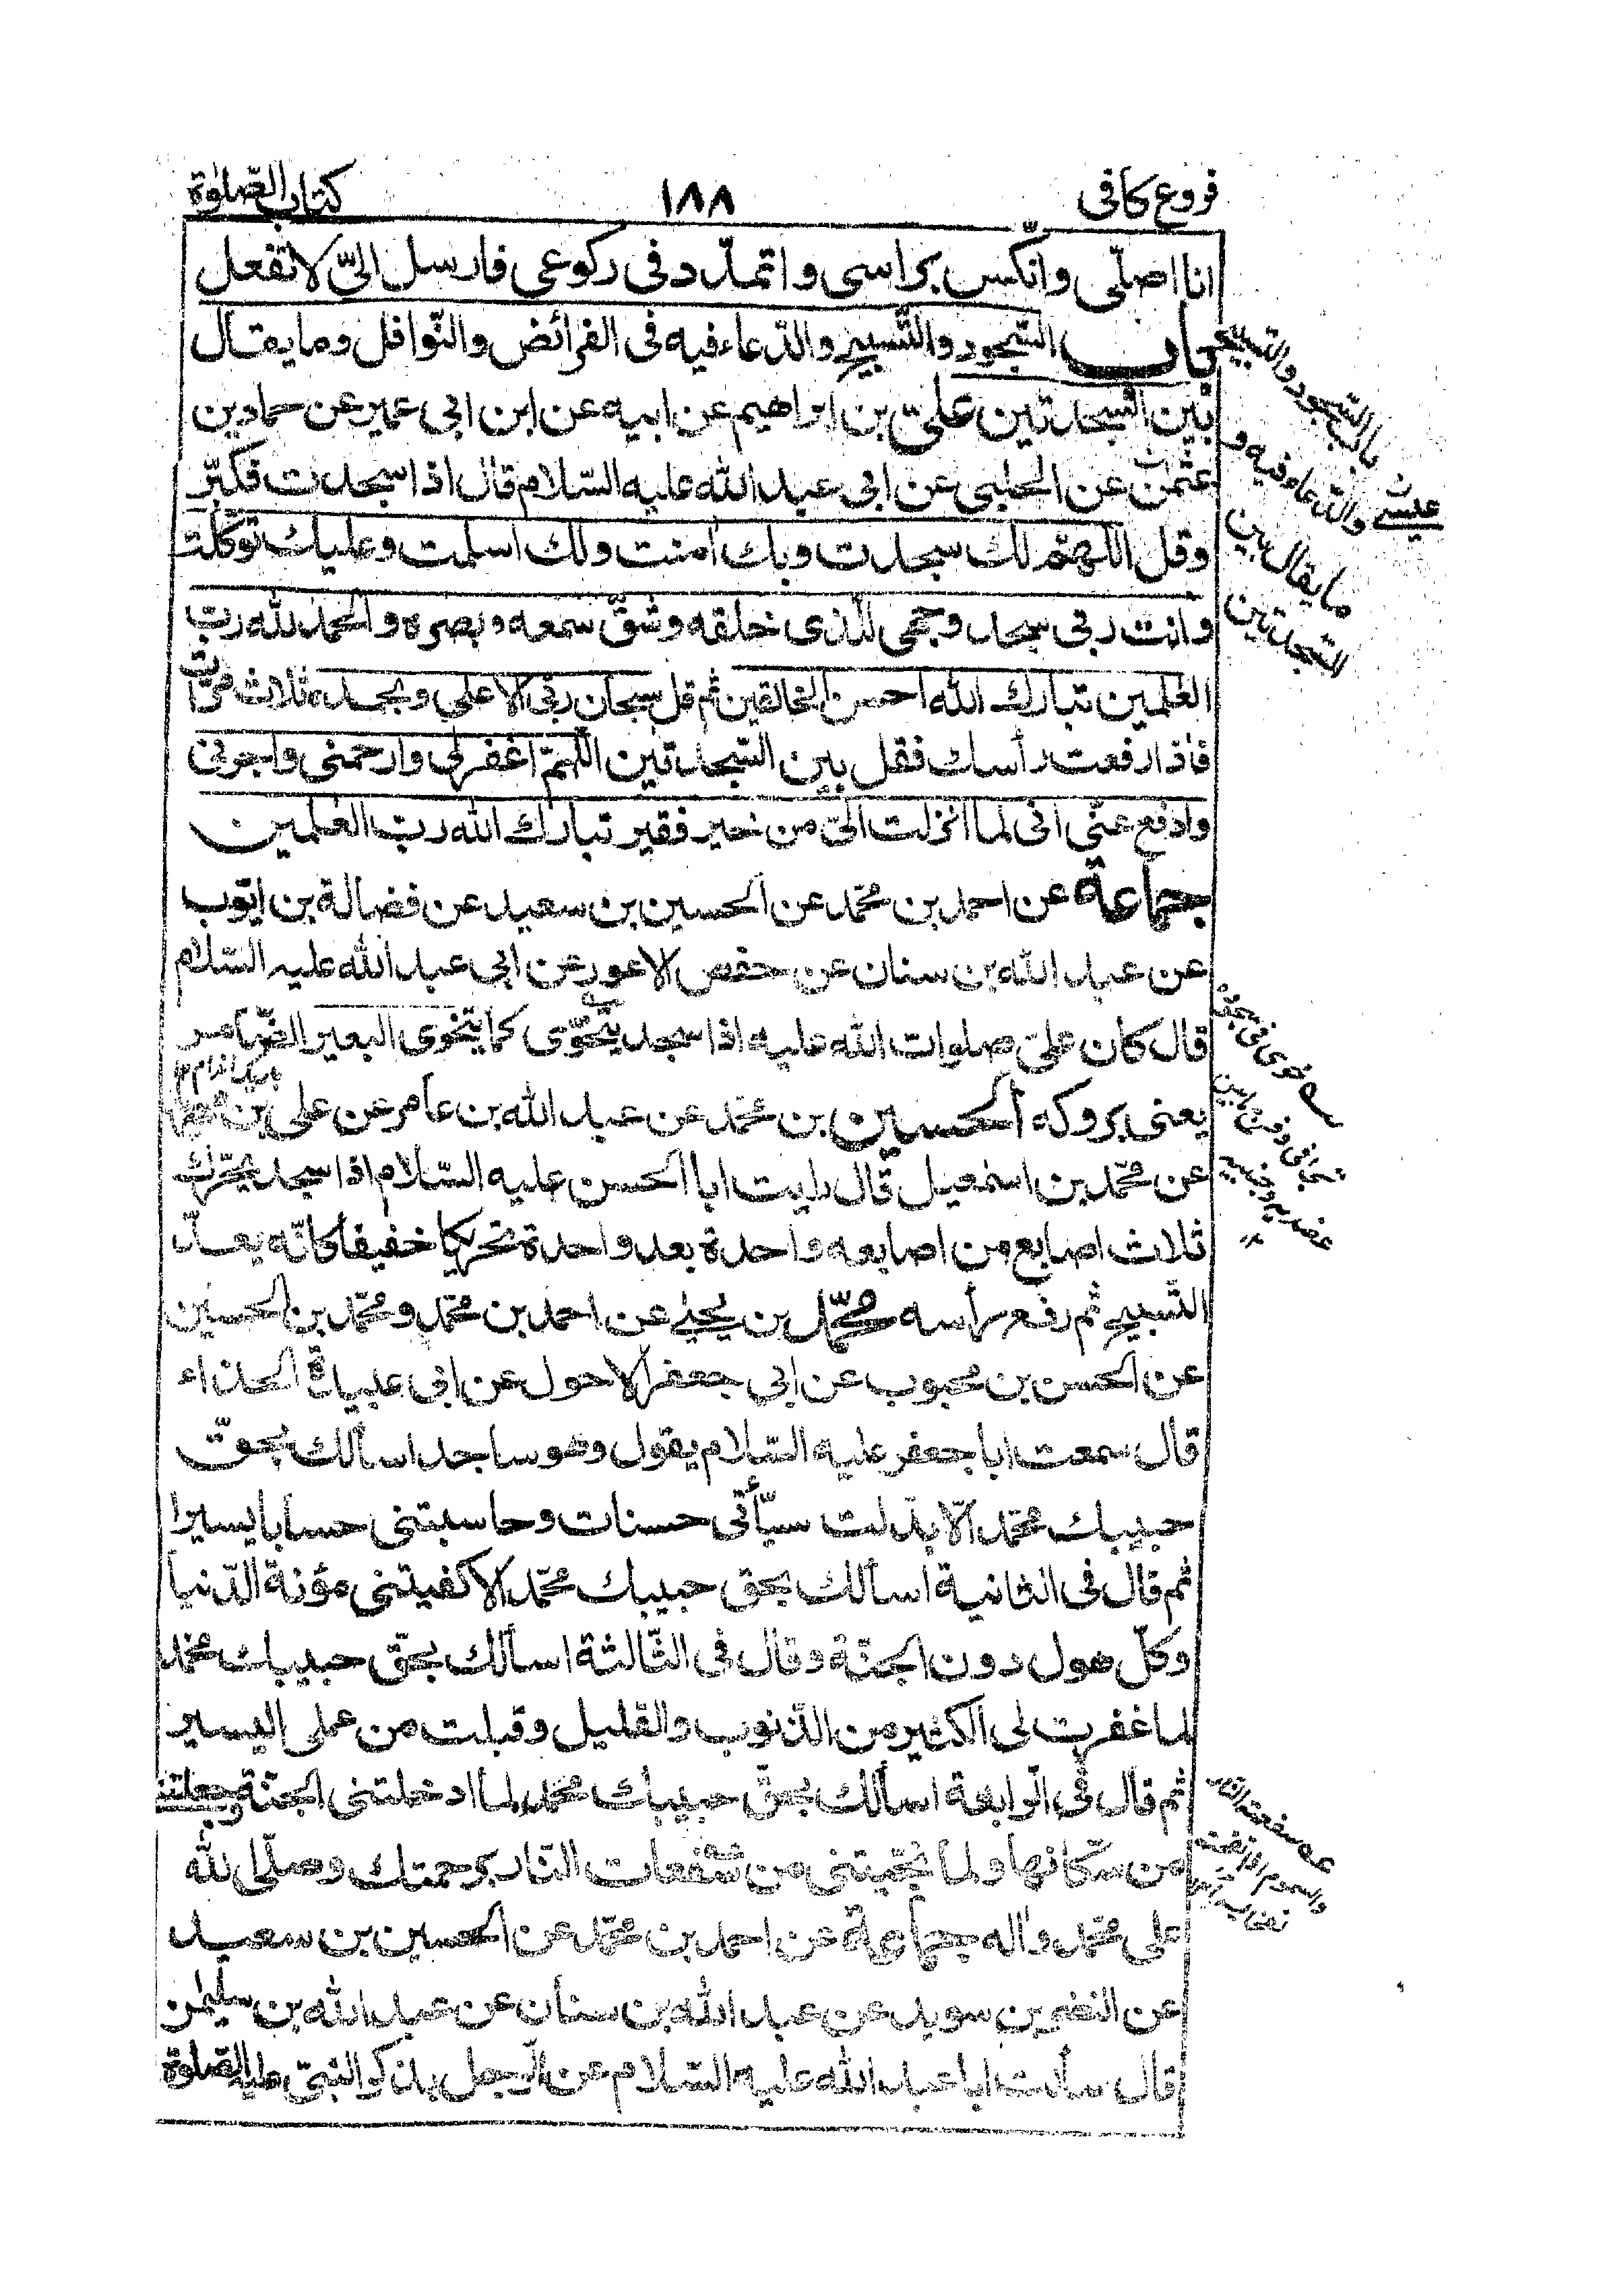 فروع کافی
۱۸۸
کتاب الصّلوٰة
انا اصلّی وانکّس براسی واتمدّد فی رکوعی فارسل الیّ لا تفعل
باب السّجود والتّسبیح والدّعاء فیه فی الفرائض والنّوافل وما یقال
بین السّجدتین علیّ بن ابراهیم عن ابیه عن ابن ابی عمیر عن حماد بن
عثمٰن عن الحلبی عن ابی عبد الله علیه السّلام قال اذا سجدت فکبّر
وقل اللهمّ لك سجدت وبك اٰمنت ولك اسلمت وعلیك توکّلت
وانت ربی سجد وجهی للّذی خلقه وشقّ سمعه وبصره والحمد لله ربّ
العٰلمین تبارك الله احسن الخالقین ثم قل سبحان ربی الاعلی وبحمده ثلاث مرّات
فاذا رفعت رأسك فقل بین السّجدتین اللّهمّ اغفر لی وارحمنی واجرنی
وادفع عنّی انی لما انزلت الیّ من خیر فقیر تبارك الله ربّ العٰلمین
جماعة عن احمد بن محمّد عن الحسین بن سعید عن فضالة بن ایّوب
عن عبد الله بن سنان عن حفص الاعور عن ابی عبد الله علیه السّلام
قال کان علیّ صلوات الله علیه اذا سجد یتخوّی کما یتخوی البعیر الضّامر
یعنی بروکه الحسین بن محمّد عن عبد الله بن عامر عن علی بن
عن محمّد بن اسمٰعیل قال رایت ابا الحسن علیه السّلام اذا سجد یحرّك
ثلاث اصابع من اصابعه واحدة بعد واحدة تحریکا خفیفا کانّه یعدّ
التّسبیح ثم رفع رأسه محمّد بن یحیٰی عن احمد بن محمّد ومحمّد بن الحسین
عن الحسن بن محبوب عن ابی جعفر الاحول عن ابی عبیدة الحذاء
قال سمعت ابا جعفر علیه السّلام یقول وهو ساجد اسألك بحقّ
حبیبك محمّد الّا بدّلت سیّأتی حسنات وحاسبتنی حسابا یسیرا
ثم قال فی الثانیة اسألك بحق حبیبك محمّد الا کفیتنی مؤنة الدّنیا
وکلّ هول دون الجنّة وقال فی الثّالثة اسألك بحقّ حبیبك محمّد
لما غفرت لی الکثیر من الذّنوب والقلیل وقبلت من عملی الیسیر
ثم قال فی الرّابعة اسألك بحقّ حبیبك محمّد لما ادخلتنی الجنّة وجعلتنی
من سکّانها ولما نجّیتنی من سفعات النّار برحمتك وصلّی الله
علی محمّد واٰله جماعة عن احمد بن محمّد عن الحسین بن سعید
عن النضر بن سوید عن عبد الله بن سنان عن عبد الله بن سلیمٰن
قال سألت ابا عبد الله علیه السّلام عن الرّجل یذکر النبیّ علیه الصّلوة
باب السّجود والتسبیح
والدّعاء فیه و
ما یقال بین
السّجدتین